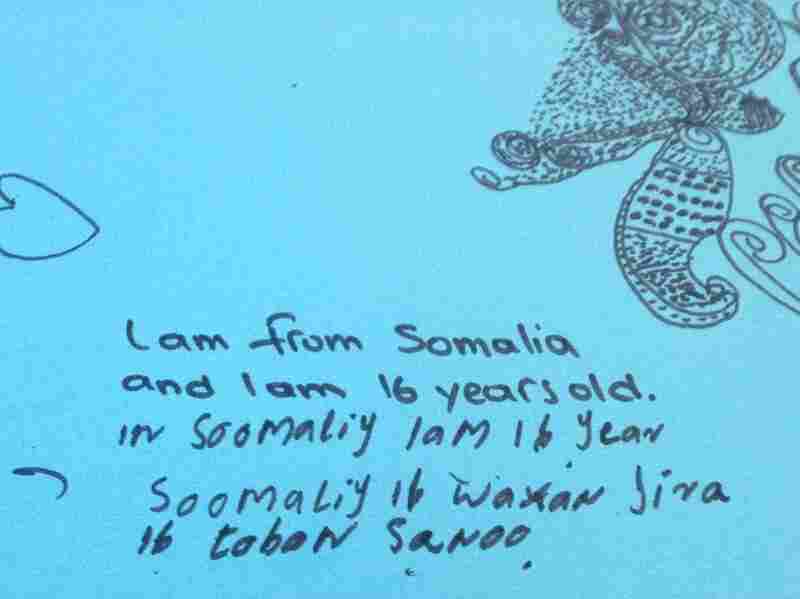 I am from Somalia
and I am 16 years old.
in Soomaliy I am 16 year
Soomaliy 16 waxan Jira
16 toban Sanoo